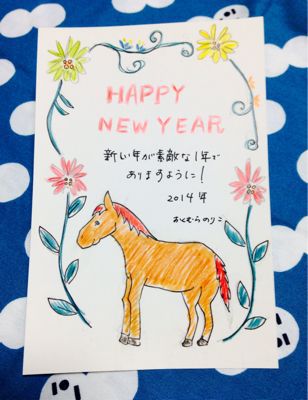 HAPPY
NEW YEAR
新しい年が素敵な1年で
ありますように!
2014年
おくむらのりこ